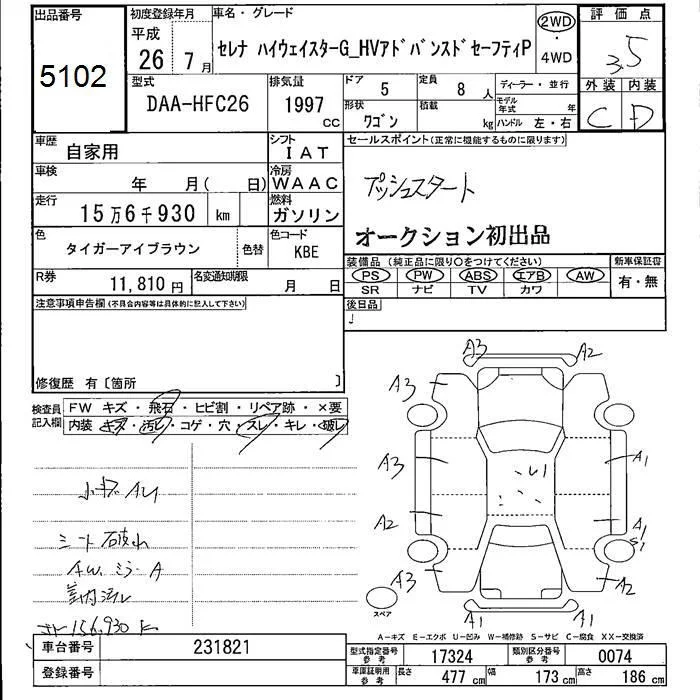 出品番号
5102
初度登録年月
平成
26年 7月
車名・グレード
セレナ ハイウェイスターG_HVアドバンスドセーフティP
2WD
4WD
評価点
3.5
外装 内装
C D
型式
DAA-HFC26
排気量
1997
cc
ドア
5
定員
8人
形状
ワゴン
積載
kg
ディーラー・並行
モデル年式
年
ハンドル 左・右
車歴
自家用
シフト
IAT
車検
年 月( 日)
冷房
WAAC
走行
15万6千930 km
燃料
ガソリン
色
タイガーアイブラウン
色替
色コード
KBE
R券
11,810円
名変通知期限
月 日
セールスポイント(正常に機能するものに限ります)
プッシュスタート
オークション初出品
装備品(純正品に限り○をつけてください)
新車保証書
PS PW ABS エアB AW
有・無
SR ナビ TV カワ
後日品
注意事項申告欄(不具合内容等は具体的に記入して下さい)
修復歴 有〔箇所 〕
検査員記入欄
FW キズ・飛石・ヒビ割・リペア跡・×要
内装 キズ・汚レ・コゲ・穴・スレ・キレ・破レ
小キズ AU
シート破れ
AW ミラーA
メーター156,930K
A3
A2
A3
A3
A1
A2
A1
S1
A3
A2
A1
A1
スペア
A-キズ E-エクボ U-凹み W-補修跡 S-サビ C-腐食 XX-交換済
車台番号
231821
登録番号
型式指定番号 参考
17324
類別区分番号 参考
0074
車庫証明用 参考
長さ 477cm
幅 173cm
高さ 186cm